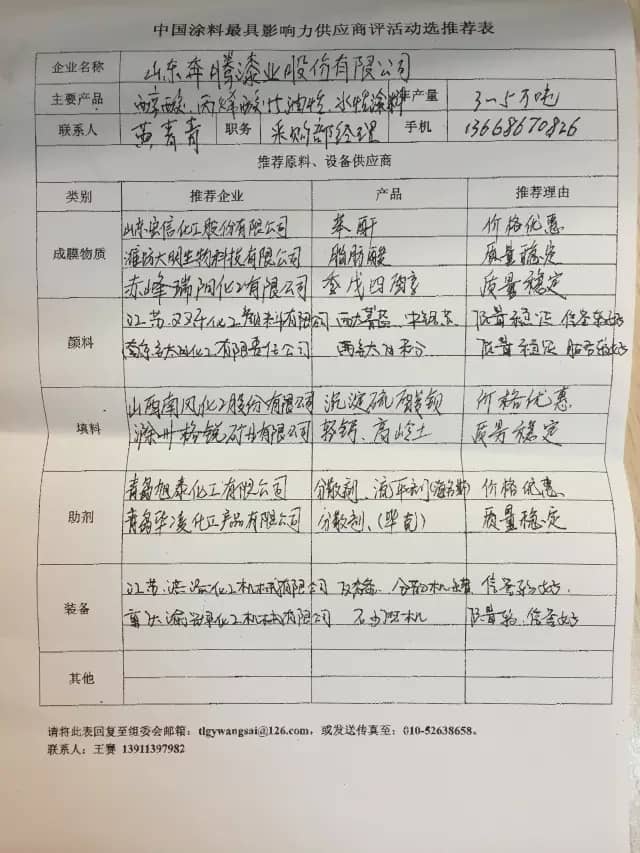 中国涂料最具影响力供应商评活动选推荐表
企业名称 山东奔腾漆业股份有限公司
主要产品 醇酸、丙烯酸 水性涂料 年产量 3-5万吨
联系人 黄青青 职务 采购部经理 手机 13668670826
推荐原料、设备供应商
类别 推荐企业 产品 推荐理由
成膜物质 山东宏信化工股份有限公司 苯酐 价格优惠
潍坊大明生物科技有限公司 脂肪酸 质量稳定
赤峰瑞阳化工有限公司 季戊四醇 质量稳定
颜料 江苏双乐化工颜料有限公司 酞菁蓝、中铬黄 质量稳定
有限责任公司 质量稳定
填料 山西南风化工股份有限公司 沉淀硫酸钡 价格优惠
滁州格锐矿业有限公司 轻钙、高岭土 质量稳定
助剂 青岛旭泰化工有限公司 分散剂、流平剂 价格优惠
青岛华凌化工产品有限公司 分散剂、 质量稳定
装备 江苏 化工机械有限公司 反应釜、分散机 信誉较好
重庆渝 化工机械有限公司 砂磨机 质量 信誉好
其他
请将此表回复至组委会邮箱：tlgywangsai@126.com，或发送传真至：010-52638658。
联系人：王赛 13911397982